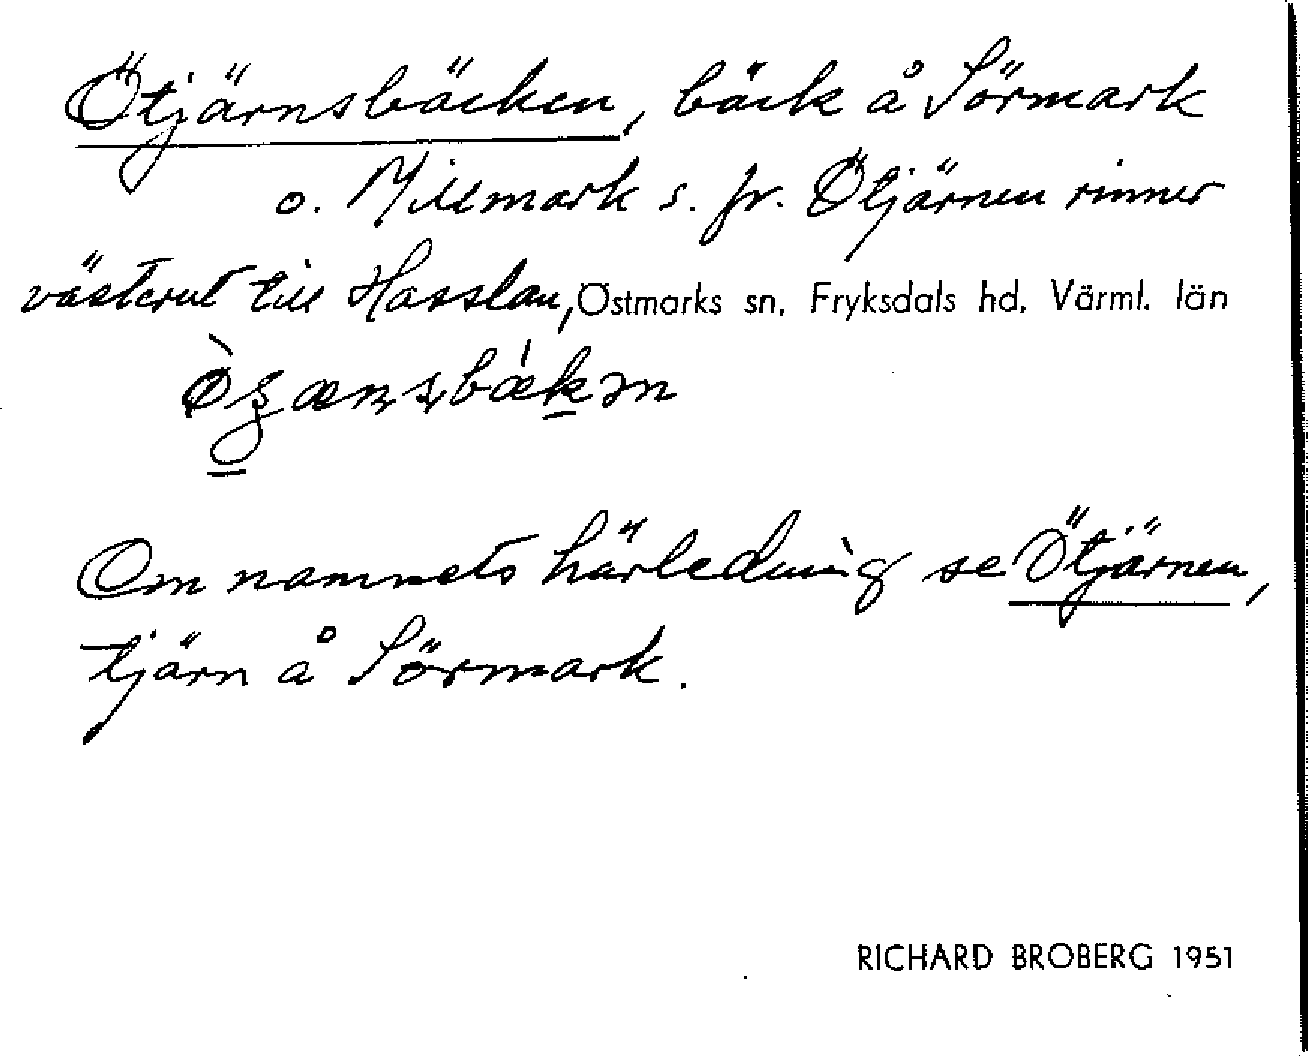 Ötjärnsbäcken, bäck å Sörmark
o. Millmark s. fr. Ötjärnen rinner
västerut till Hasslan, Östmarks sn, Fryksdals hd. Värml. län
Om namnets härledning se Ötjärnen,
tjärn å Sörmark.
RICHARD BROBERG 1951